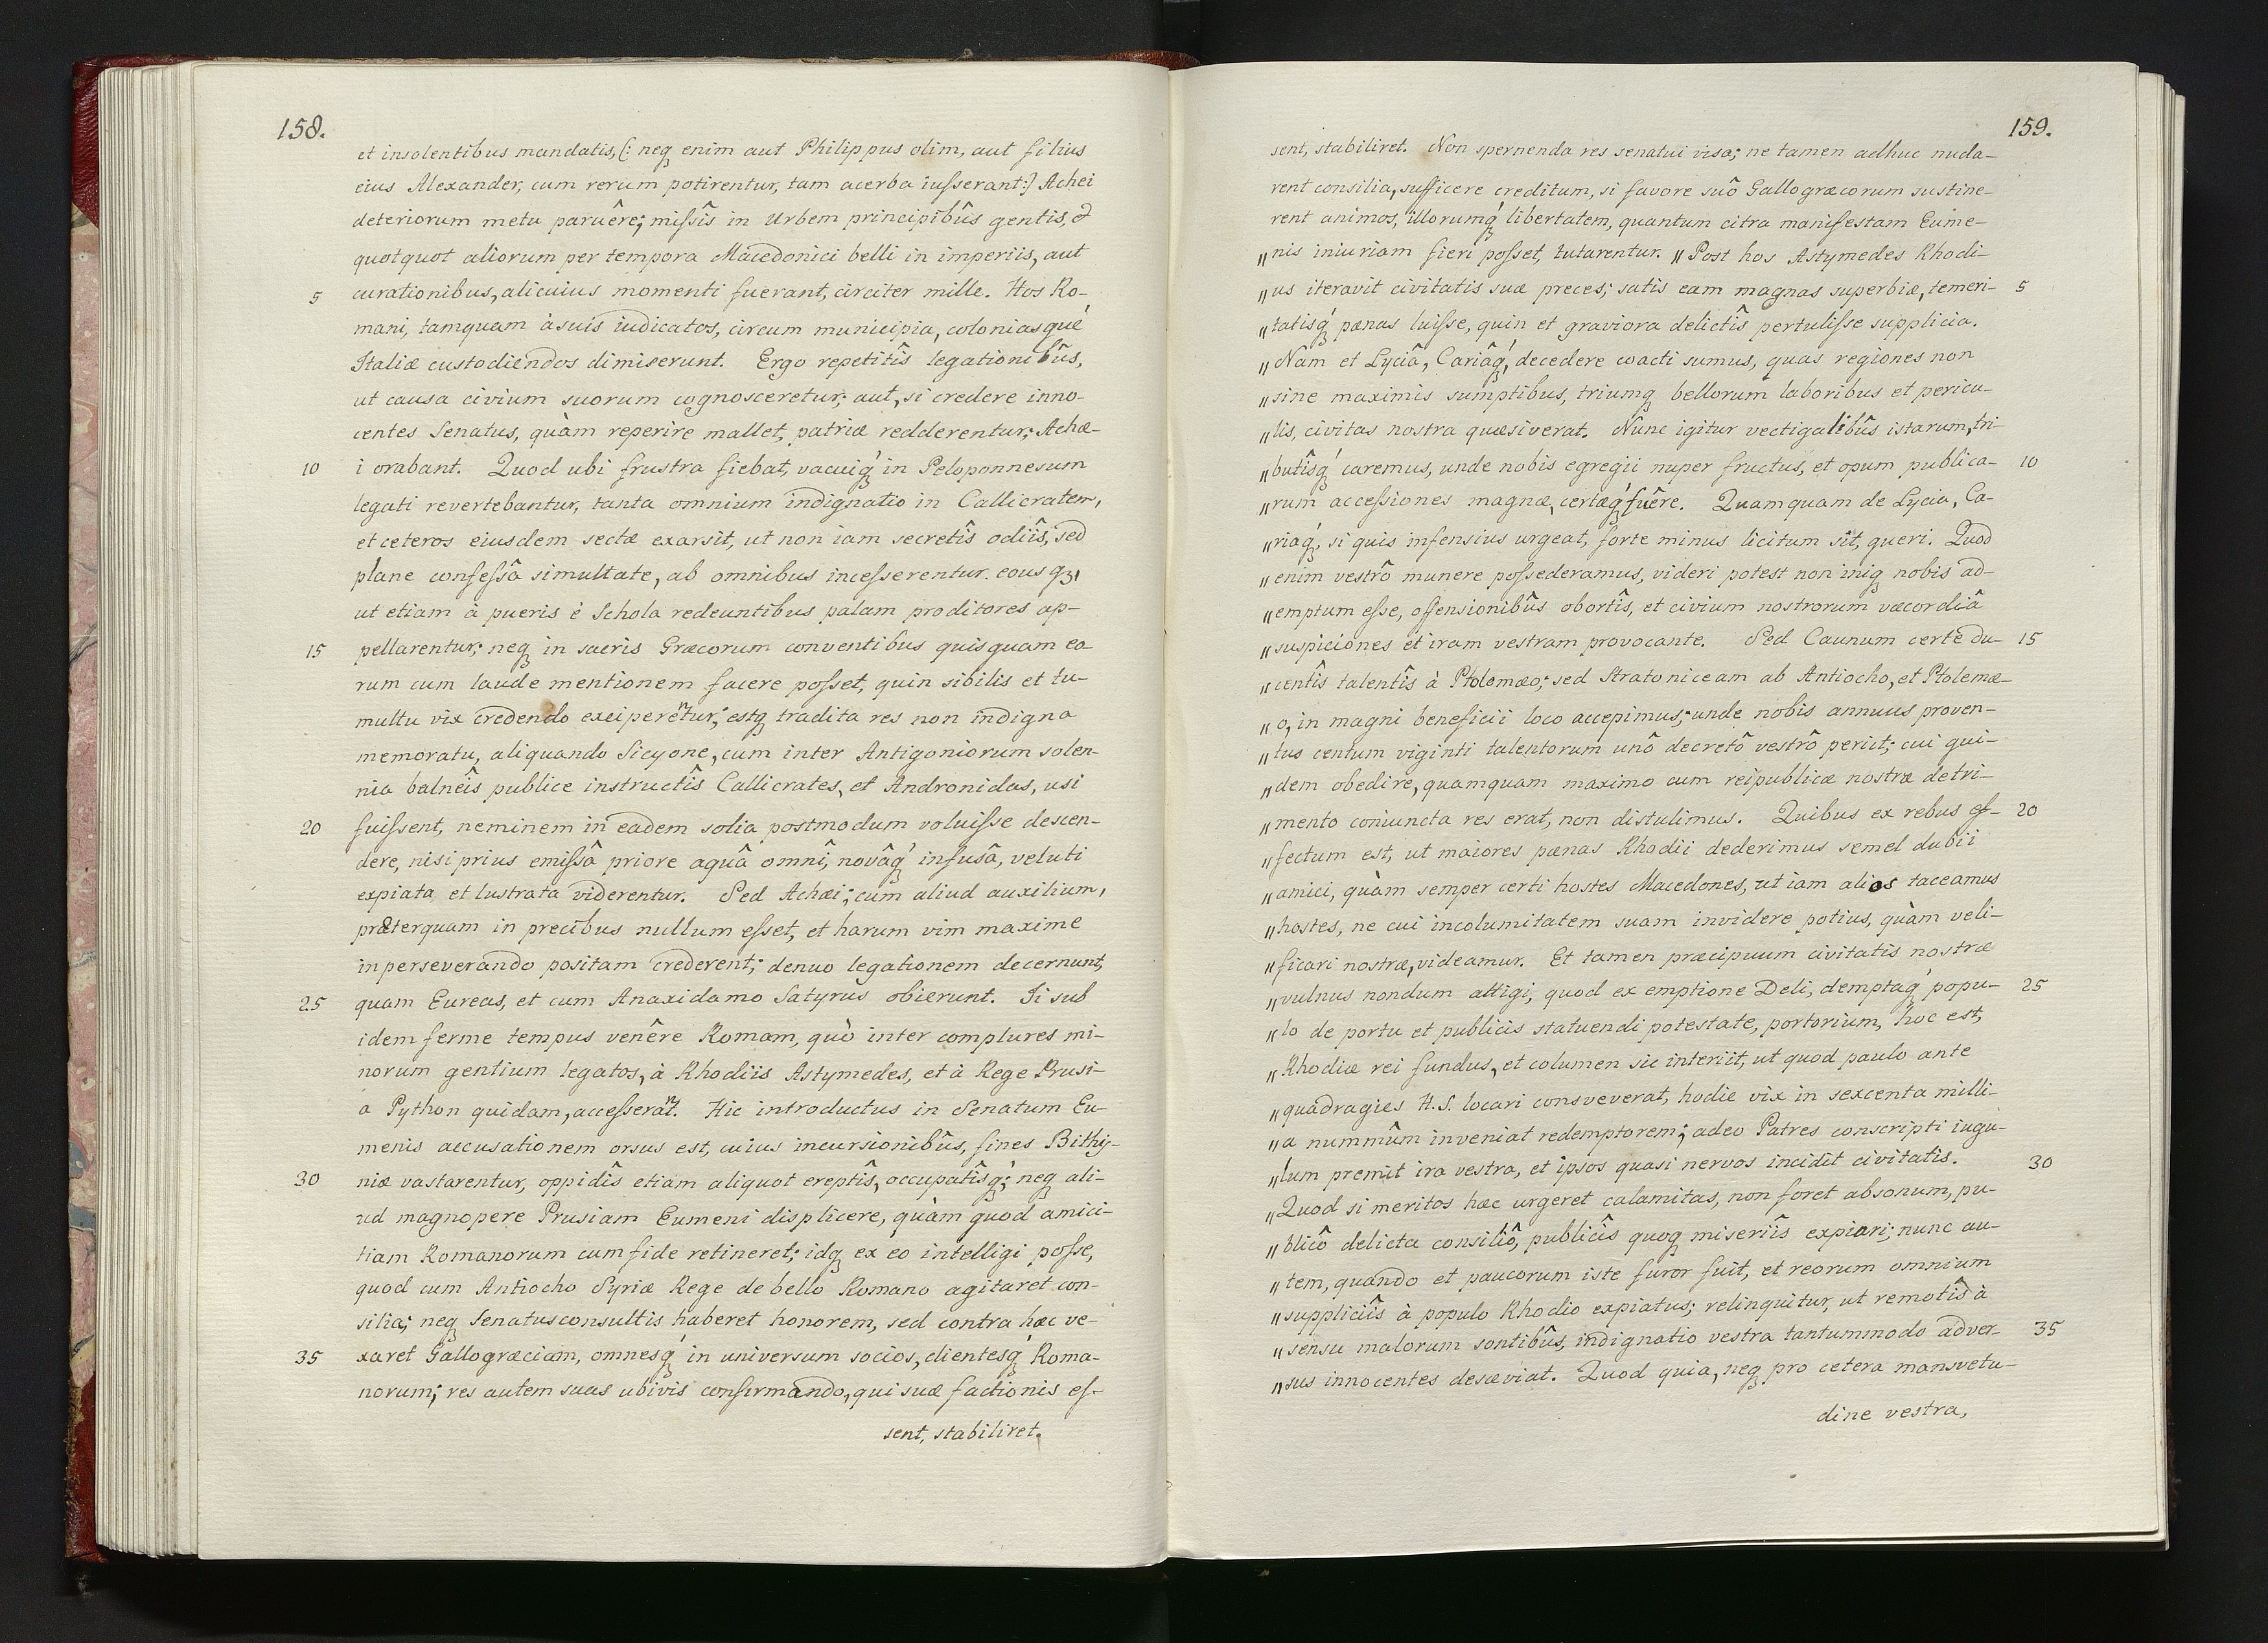 158.
et insolentibus mandatis, (: neq enim aut Philippus olim, aut filius
eius Alexander, cum rerum potirentur, tam acerba iusserant:) Achei
deteriorum metu paruêre; missîs in Urbem principibûs gentis, et
quotquot aliorum per tempora Macedonici belli in imperiis, aut
5 curationibus, alicuius momenti fuerant, circiter mille. Hos Ro-
mani, tamquam à suis iudicatos, circum municipia, coloniasqué
Italiæ custodiendos dimiserunt. Ergo repetitîs legationibûs,
ut causa civium suorum cognosceretur; aut, si credere inno-
centes Senatus, quàm reperire mallet, patriæ redderentur; Achæ-
10 i orabant. Quod ubi frustra fiebat, vacuiq́ in Peloponnesum
legati revertebantur, tanta omnium indignatio in Callicratem,
et ceteros eiusdem sectæ exarsit, ut non iam secretîs odiîs, sed
plane confessâ simultate, ab omnibus incesserentur. eousq,
ut etiam à pueris è Schola redeuntibus palam proditores ap-
15 pellarentur; neq in sacris Græcorum conventibus quisquam eo-
rum cum laude mentionem facere posset, quin sibilis et tu-
multu vix credendo exciperentur; estq tradita res non indigna
memoratu, aliquando Sicyone, cum inter Antigoniorum solen-
nia balneîs publice instructîs Callicrates, et Andronidas, usi
20 fuissent, neminem in eadem solia postmodum voluisse descen-
dere, nisi prius emissâ priore aquâ omnî, novâq́ infusâ, veluti
expiata et lustrata viderentur. Sed Achæi; cum aliud auxilium,
præterquam in precibus nullum esset, et harum vim maxime
in perseverando positam crederent; denuo legationem decernunt,
25 quam Eureas, et cum Anaxidamo Satyrus obierunt. Ii sub
idem ferme tempus venêre Romam, quò inter complures mi-
norum gentium legatos, à Rhodiis Astymedes, et à Rege Prusi-
a Python quidam, accesserant. Hic introductus in Senatum Eu-
menis accusationem orsus est, cuius incursionibûs, fines Bithy-
30 niæ vastarentur, oppidîs etiam aliquot ereptîs, occupatîsq́; neq ali-
ud magnopere Prusiam Eumeni displicere, quàm quod amici-
tiam Romanorum cum fide retineret; idq ex eo intelligi posse,
quod cum Antiocho Syriæ Rege de bello Romano agitaret con-
silia; neq Senatusconsultis haberet honorem, sed contra hæc ve-
35 xaret Gallogræciam, omnesq́ in universum socios, clientesq́ Roma-
norum; res autem suas ubivis confirmando, qui suæ factionis es-
sent, stabiliret.
159.
sent, stabiliret. Non spernenda res senatui visa; ne tamen adhuc nuda-
rent consilia, sufficere creditum, si favore suô Gallogræcorum sustine-
rent animos, illorumq́ libertatem, quantum citra manifestam Eume-
"nis iniuriam fieri posset, tutarentur. "Post hos Astymedes Rhodi-
"us iteravit civitatis suæ preces; satis eam magnas superbiæ, temeri- 5
"tatisq́ pænas luisse, quin et graviora delictîs pertulisse supplicia.
"Nam et Lyciâ, Cariâq́, decedere coacti sumus, quas regiones non
"sine maximis sumptibus, triumq bellorum laboribus et pericu-
"lis, civitas nostra quæsiverat. Nunc igitur vectigalibûs istarum, tri-
"butîsq́ caremus, unde nobis egregii nuper fructus, et opum publica- 10
"rum accessiones magnæ, certæq́ fuêre. Quamquam de Lycia, Ca-
"riaq́, si quis infensius urgeat, forte minus licitum sit, queri. Quod
"enim vestrô munere possederamus, videri potest non iniq nobis ad-
"emptum esse, offensionibûs obortîs, et civium nostrorum væcordiâ
"suspiciones et iram vestram provocante. Sed Caunum certe du- 15
"centîs talentîs à Ptolemæo; sed Stratoniceam ab Antiocho, et Ptolemæ-
"o, in magni beneficii loco accepimus; unde nobis annuus proven-
"tus centum viginti talentorum unô decretô vestrô periit; cui qui-
"dem obedire, quamquam maximo cum reipublicæ nostræ detri-
"mento coniuncta res erat, non distulimus. Quibus ex rebus ef- 20
"fectum est, ut maiores pænas Rhodii dederimus semel dubii
"amici, quàm semper certi hostes Macedones, ut iam alios taceamus
"hostes, ne cui incolumitatem suam invidere potius, quàm veli-
"ficari nostræ, videamur. Et tamen præcipuum civitatis nostræ
"vulnus nondum attigi, quod ex emptione Deli, demptaq́ popu- 25
"lo de portu et publicis statuendi potestate, portorium, hoc est,
"Rhodiæ rei fundus, et columen sic interiit, ut quod paulo ante
"quadragies H.S. locari consveverat, hodie vix in sexcenta milli-
"a nummûm inveniat redemptorem; adeo Patres conscripti iugu-
"lum premit ira vestra, et ipsos quasi nervos incidit civitatis. 30
"Quod si meritos hæc urgeret calamitas, non foret absonum, pu-
"blicô delicta consiliô, publicîs quoq miseriîs expiari; nunc au-
"tem, quando et paucorum iste furor fuit, et reorum omnium
"suppliciîs à populo Rhodio expiatus; relinquitur, ut remotîs à
"sensu malorum sontibûs, indignatio vestra tantummodo adver- 35
"sus innocentes desæviat. Quod quia, neq pro cetera mansvetu-
dine vestra,